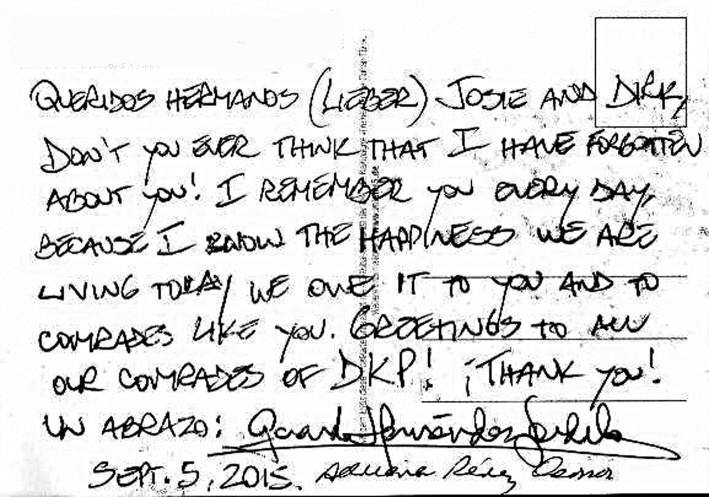 QUERIDOS HERMANOS (LIEBER) JOSIE AND DIRK,
DON'T YOU EVER THINK THAT I HAVE FORGOTTEN
ABOUT YOU! I REMEMBER YOU EVERY DAY,
BECAUSE I KNOW THE HAPPINESS WE ARE
LIVING TODAY WE OWE IT TO YOU AND TO
COMRADES LIKE YOU. GREETINGS TO ALL
OUR COMRADES OF DKP! ¡THANK YOU!
UN ABRAZO: Gerardo Hernández Nordelo
SEPT. 5, 2015. Adriana Pérez Oconor